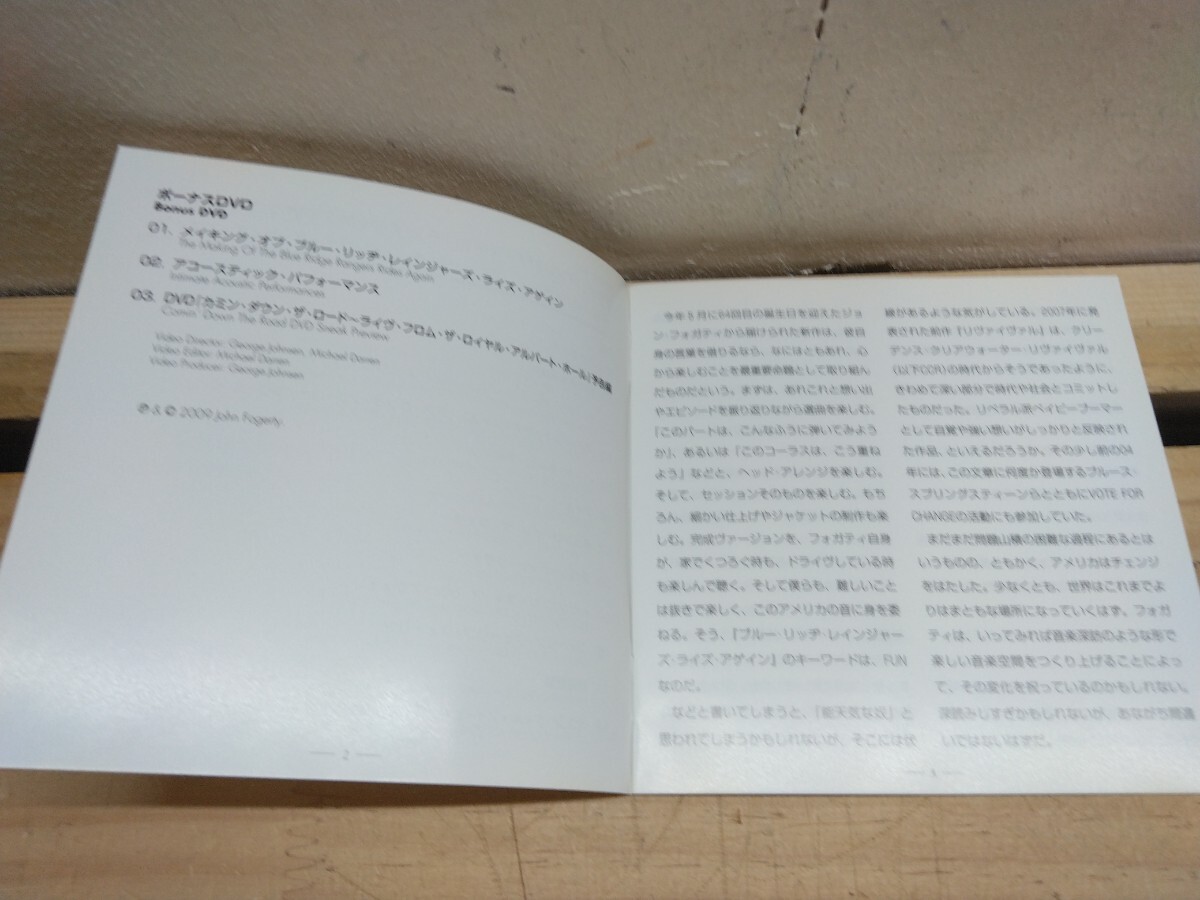 ボーナスDVD
Bonus DVD
01. メイキング・オブ・ブルー・リッヂ・レインジャーズ・ライズ・アゲイン
The Making Of The Blue Ridge Rangers Rides Again
02. アコースティック・パフォーマンス
Intimate Acoustic Performances
03. DVD「カミン・ダウン・ザ・ロード～ライヴ・フロム・ザ・ロイヤル・アルバート・ホール」予告編
Comin' Down The Road DVD Sneak Preview
Video Director: George Johnsen, Michael Darren
Video Editor: Michael Darren
Video Producer: George Johnsen
℗ & © 2009 John Fogerty.
2
今年5月に64回目の誕生日を迎えたジョ
ン・フォガティから届けられた新作は、彼自
身の言葉を借りるなら、なにはともあれ、心
から楽しむことを最重要命題として取り組ん
だものだという。まずは、あれこれと想い出
やエピソードを振り返りながら選曲を楽しむ。
「このパートは、こんなふうに弾いてみよう
か」、あるいは「このコーラスは、こう重ね
よう」などと、ヘッド・アレンジを楽しむ。
そして、セッションそのものを楽しむ。もち
ろん、細かい仕上げやジャケットの制作も楽
しむ。完成ヴァージョンを、フォガティ自身
が、家でくつろぐ時も、ドライヴしている時
も楽しんで聴く。そして僕らも、難しいこと
は抜きで楽しく、このアメリカの音に身を委
ねる。そう、『ブルー・リッヂ・レインジャー
ズ・ライズ・アゲイン』のキーワードは、FUN
なのだ。
などと書いてしまうと、「能天気な奴」と
思われてしまうかもしれないが、そこには伏
線があるような気がしている。2007年に発
表された前作『リヴァイヴァル』は、クリー
デンス・クリアウォーター・リヴァイヴァル
(以下CCR)の時代からそうであったように、
きわめて深い部分で時代や社会とコミットし
たものだった。リベラル派ベイビーブーマー
として自覚や強い想いがしっかりと反映され
た作品、といえるだろうか。その少し前の04
年には、この文章に何度か登場するブルース・
スプリングスティーンらとともにVOTE FOR
CHANGEの活動にも参加していた。
まだまだ問題山積の困難な過程にあるとは
いうものの、ともかく、アメリカはチェンジ
をはたした。少なくとも、世界はこれまでよ
りはまともな場所になっていくはず。フォガ
ティは、いってみれば音楽探訪のような形で
楽しい音楽空間をつくり上げることによっ
て、その変化を祝っているのかもしれない。
深読みしすぎかもしれないが、あながち間違
いではないはずだ。
3